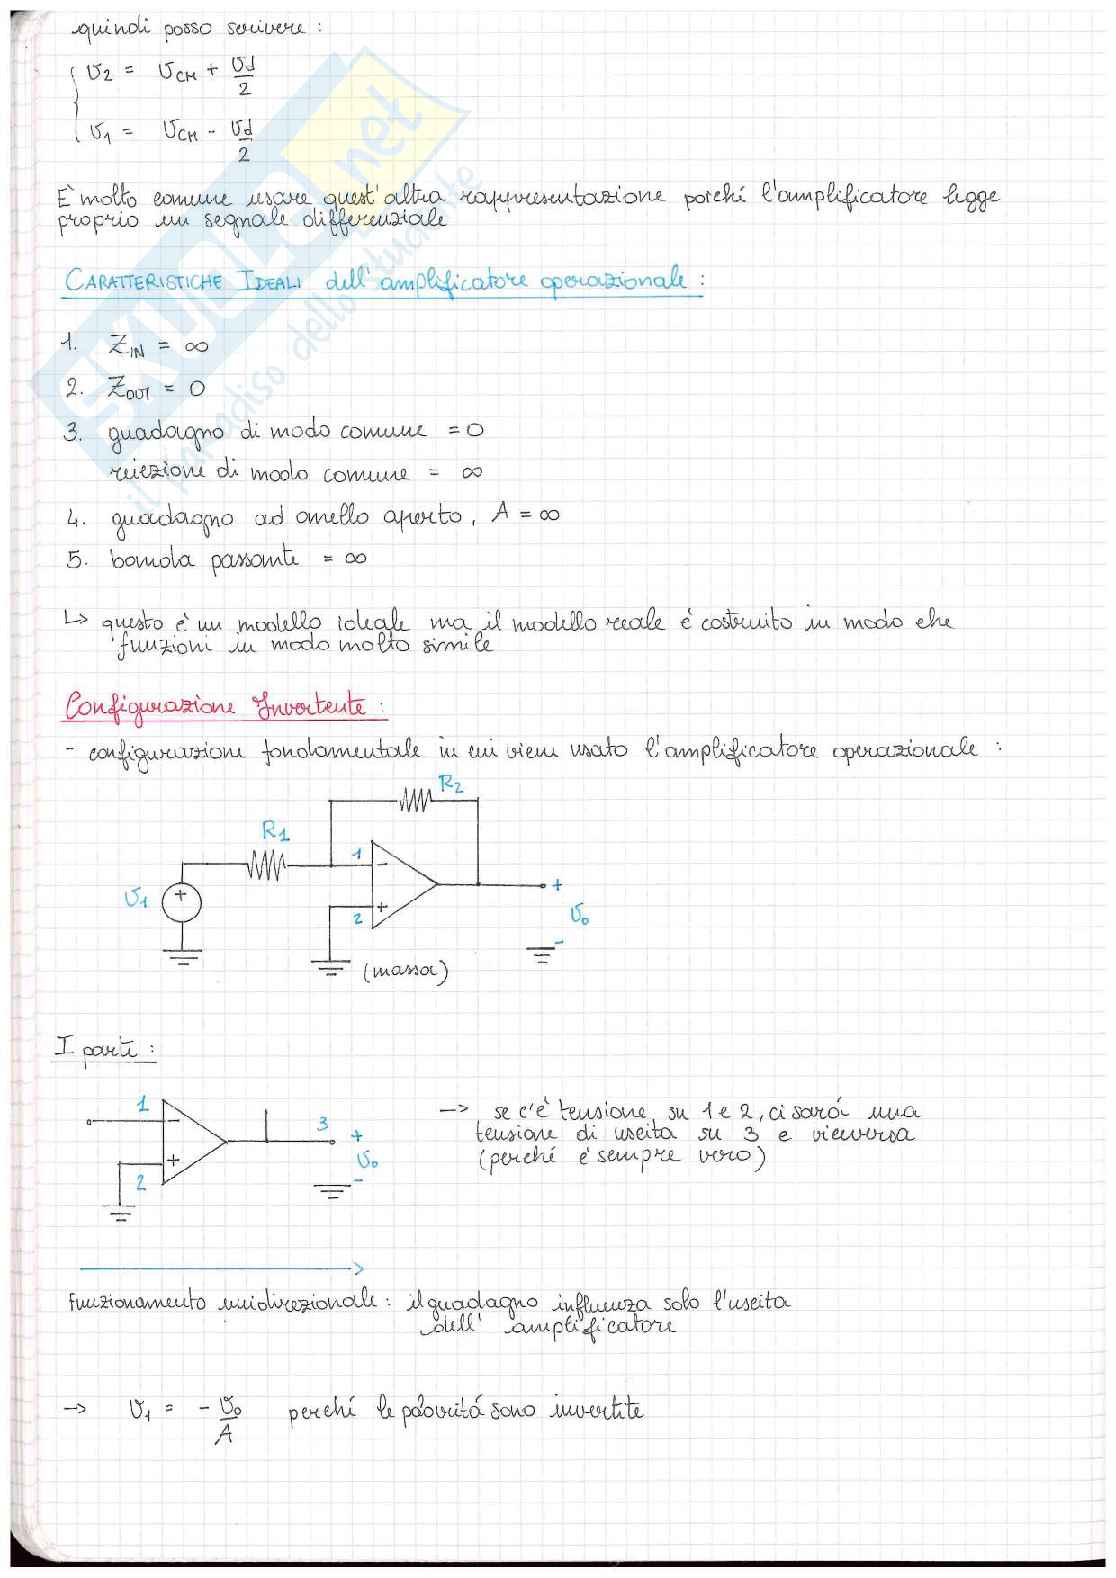 quindi posso scrivere :
υ2 = υCM + υd/2
υ1 = υCM - υd/2
È molto comune usare quest'altra rappresentazione perché l'amplificatore legge
proprio un segnale differenziale
CARATTERISTICHE IDEALI dell'amplificatore operazionale :
1. ZIN = ∞
2. ZOUT = 0
3. guadagno di modo comune = 0
reiezione di modo comune = ∞
4. guadagno ad anello aperto, A = ∞
5. banda passante = ∞
↳ questo è un modello ideale ma il modello reale è costruito in modo che
funzioni in modo molto simile
Configurazione Invertente :
- configurazione fondamentale in cui viene usato l'amplificatore operazionale :
R2
R1
1
-
υ1
+
2
+
+
υ0
-
(massa)
I parte :
1
-
3
+
+
υ0
2
-
-> se c'è tensione su 1 e 2, ci sará una
tensione di uscita su 3 e viceversa
(perché è sempre vero)
funzionamento unidirezionale : il guadagno influenza solo l'uscita
dell' amplificatore
-> υ1 = - υ0/A perché le polarità sono invertite
SKUOLA.net
il paradiso dello studente